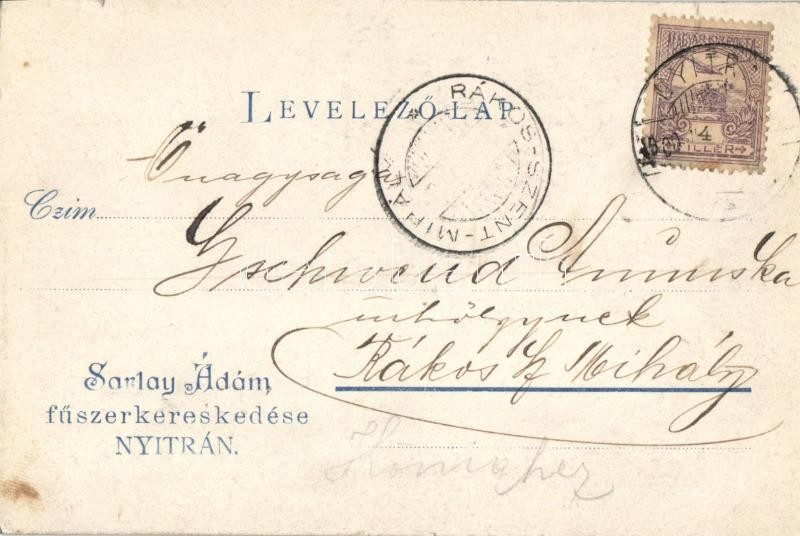 MAGYAR KIR. POSTA
4
FILLÉR
NYITRA
LEVELEZŐ-LAP
RÁKOS-SZENT-MIHÁLY
Őnagysága
Czim
Gschwend Annuska
úrhölgynek
Rákos Sz Mihály
Sarlay Ádám
fűszerkereskedése
NYITRÁN.